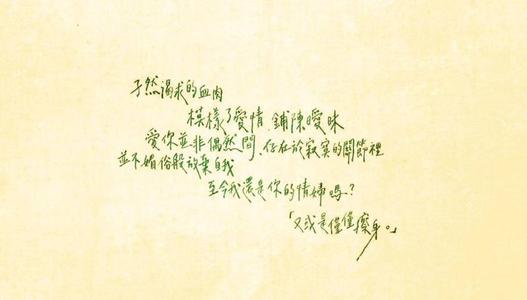 孑然渴求的血肉
模樣了愛情、鋪陳曖昧
愛你並非偶然間、存在於寂寞的關節裡
並不媚俗般放棄自我
至今我還是你的情婦嗎？
「又或是僅僅擦身。」